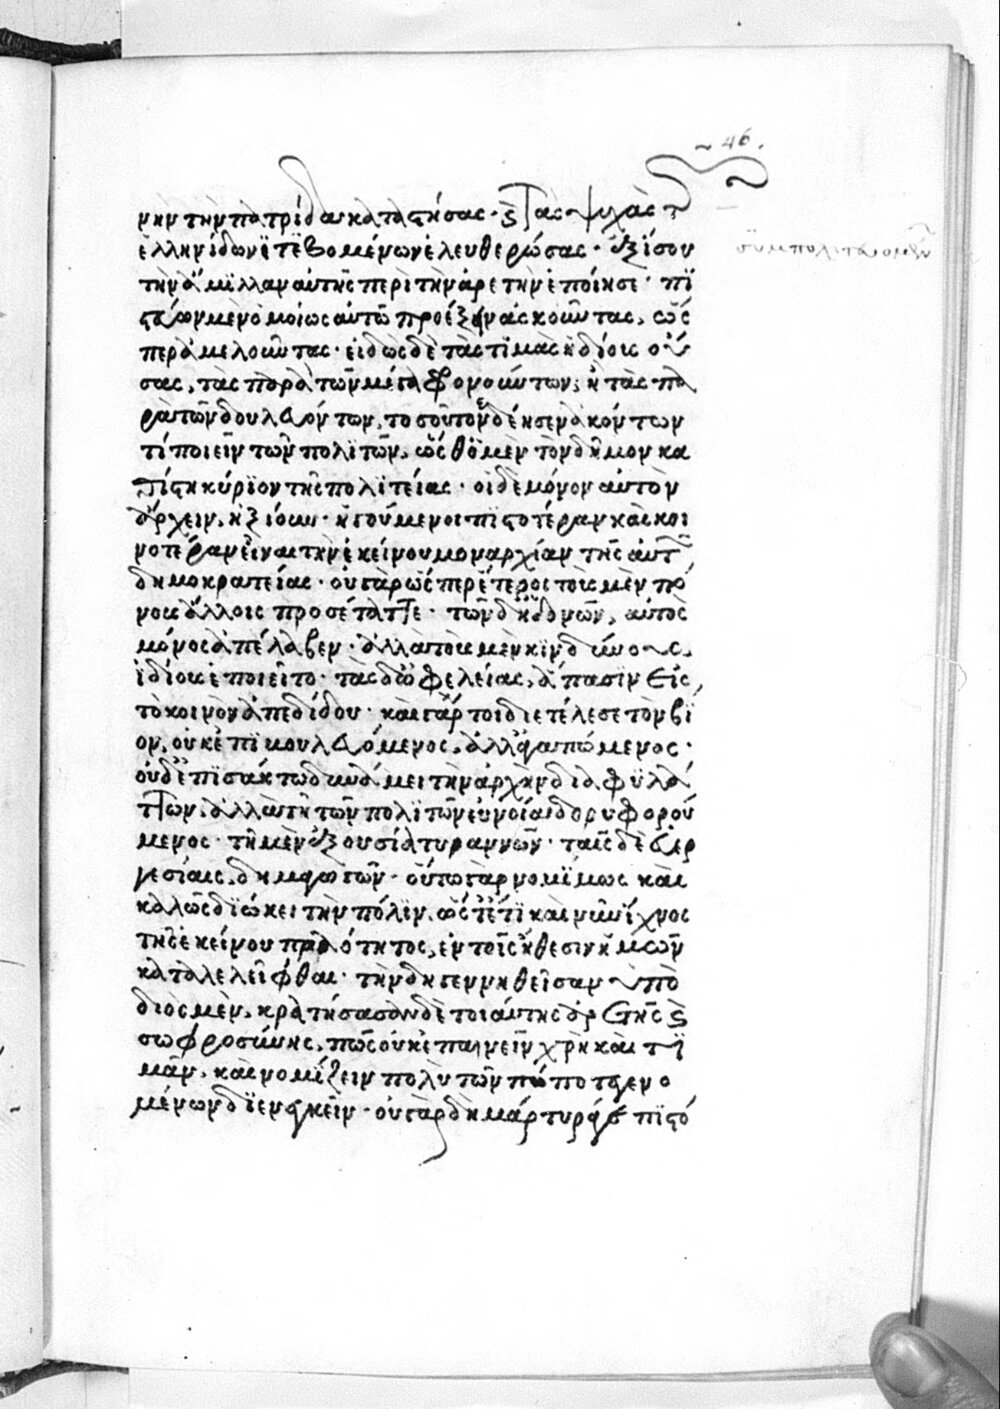 46.
νην τὴν πατρίδα καταστήσας· καὶ τὰς ψυχὰς τ
συμπολιτευομένων
ἑλλήνιδων τε βομένων ἐλευθερώσας· ἐξ ἴσου
τὴν ἅμιλλαν αὐτῆς περὶ τὴν ἀρετὴν ἐποίησε· πϊ
στεύων μὲν ὁμοίως αὐτῶ προέξειν ἀσκοῦντας, ὥς
περ ἀμελοῦντας· εἰδὼς δὲ τὰς τϊμὰς ἡδίους οὔ
σας, τὰς παρὰ τῶν μέγα φρονούντων, ἢ τὰς πα
ρὰ τῶν δουλευόντων, τοσοῦτον δέησεν ἀκόντων
τί ποιεῖν τῶν πολϊτῶν, ὥσθ' ὁ μὲν τὸν δῆμον κα
θίστη κύρϊον τῆς πολϊτείας· οἱ δὲ μόνον αὐτὸν
ἄρχειν, ἠξίουν· ἡγούμενοι πϊστοτέραν καὶ κοι
νοτέραν εἶναι τὴν ἐκείνου μοναρχίαν τῆς αὐτῶν
δημοκρατείας· οὐ γὰρ ὥσπερ ἕτεροι τοὺς μὲν πό
νους ἄλλοις προσέταττε· τῶν δ' ἡδονῶν, αὐτὸς
μόνος ἀπέλαβεν· ἀλλὰ τοὺς μὲν κϊνδύνους
ϊδίους ἐποιεῖτο· τὰς δ' ὠφελείας, ἅπασϊν εἰς
τὸ κοινὸν ἀπεδίδου· καὶ γάρ τοι διετέλεσε τὸν βϊ
ον, οὐκ ἐπϊβουλευόμενος, ἀλλ' ἀγαπώμενος·
οὐδ' ἐπϊσάκτω δυνάμει τὴν ἀρχὴν διαφϋλά
ττων, ἀλλὰ τῆ τῶν πολϊτῶν εὐνοία δορυφορού
μενος· τῆ μὲν ἐξουσία τυραννῶν· ταῖς δὲ εὐερ
γεσίαις, δημαγωγῶν· οὕτω γὰρ νομϊμως καὶ
καλῶς διώκει τὴν πόλϊν, ὥστ' ἔτϊ καὶ νῦν ϊχνος
τῆς ἐκείνου πραότητος, ἐν τοῖς ἤθεσιν ἡμῶν
καταλελεῖφθαι· τὴν δὴ γεννηθεῖσαν ὑπὸ
διὸς μὲν, κρατήσασαν δὲ τοιαύτης ἀρετῆς καὶ
σωφροσύνης, πῶς οὐκ ἐπαινεῖν χρὴ καὶ τϊ
μᾶν, καὶ νομϊζειν πολὺ τῶν πώποτε γενο
μένων διενεγκεῖν· οὐ γὰρ δὴ μάρτυρά γε πϊστό